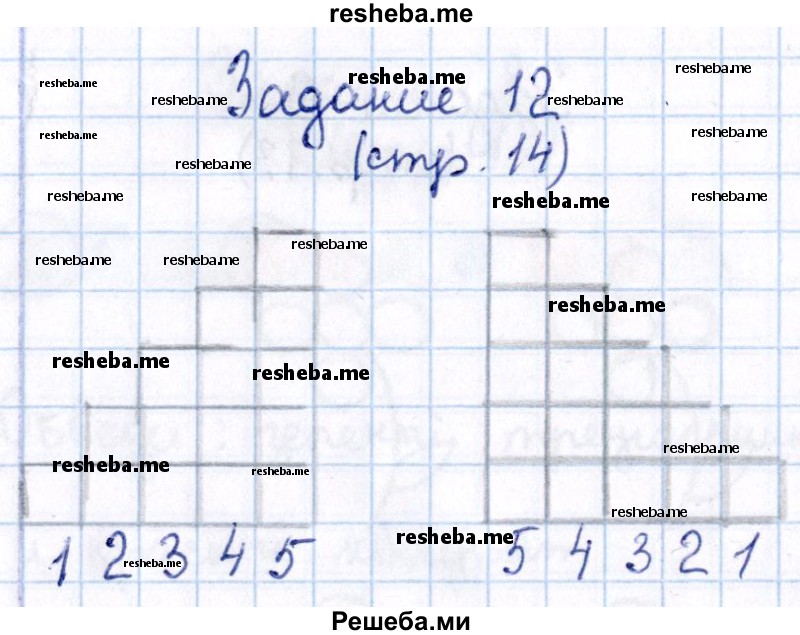 resheba.me
resheba.me
resheba.me
resheba.me
Задание 12
resheba.me
resheba.me
resheba.me
resheba.me
resheba.me
(стр. 14)
resheba.me
resheba.me
resheba.me
resheba.me
resheba.me
resheba.me
resheba.me
resheba.me
resheba.me
resheba.me
resheba.me
resheba.me
resheba.me
resheba.me
1 2 3 4 5
5 4 3 2 1
resheba.me
resheba.me
Решеба.ми